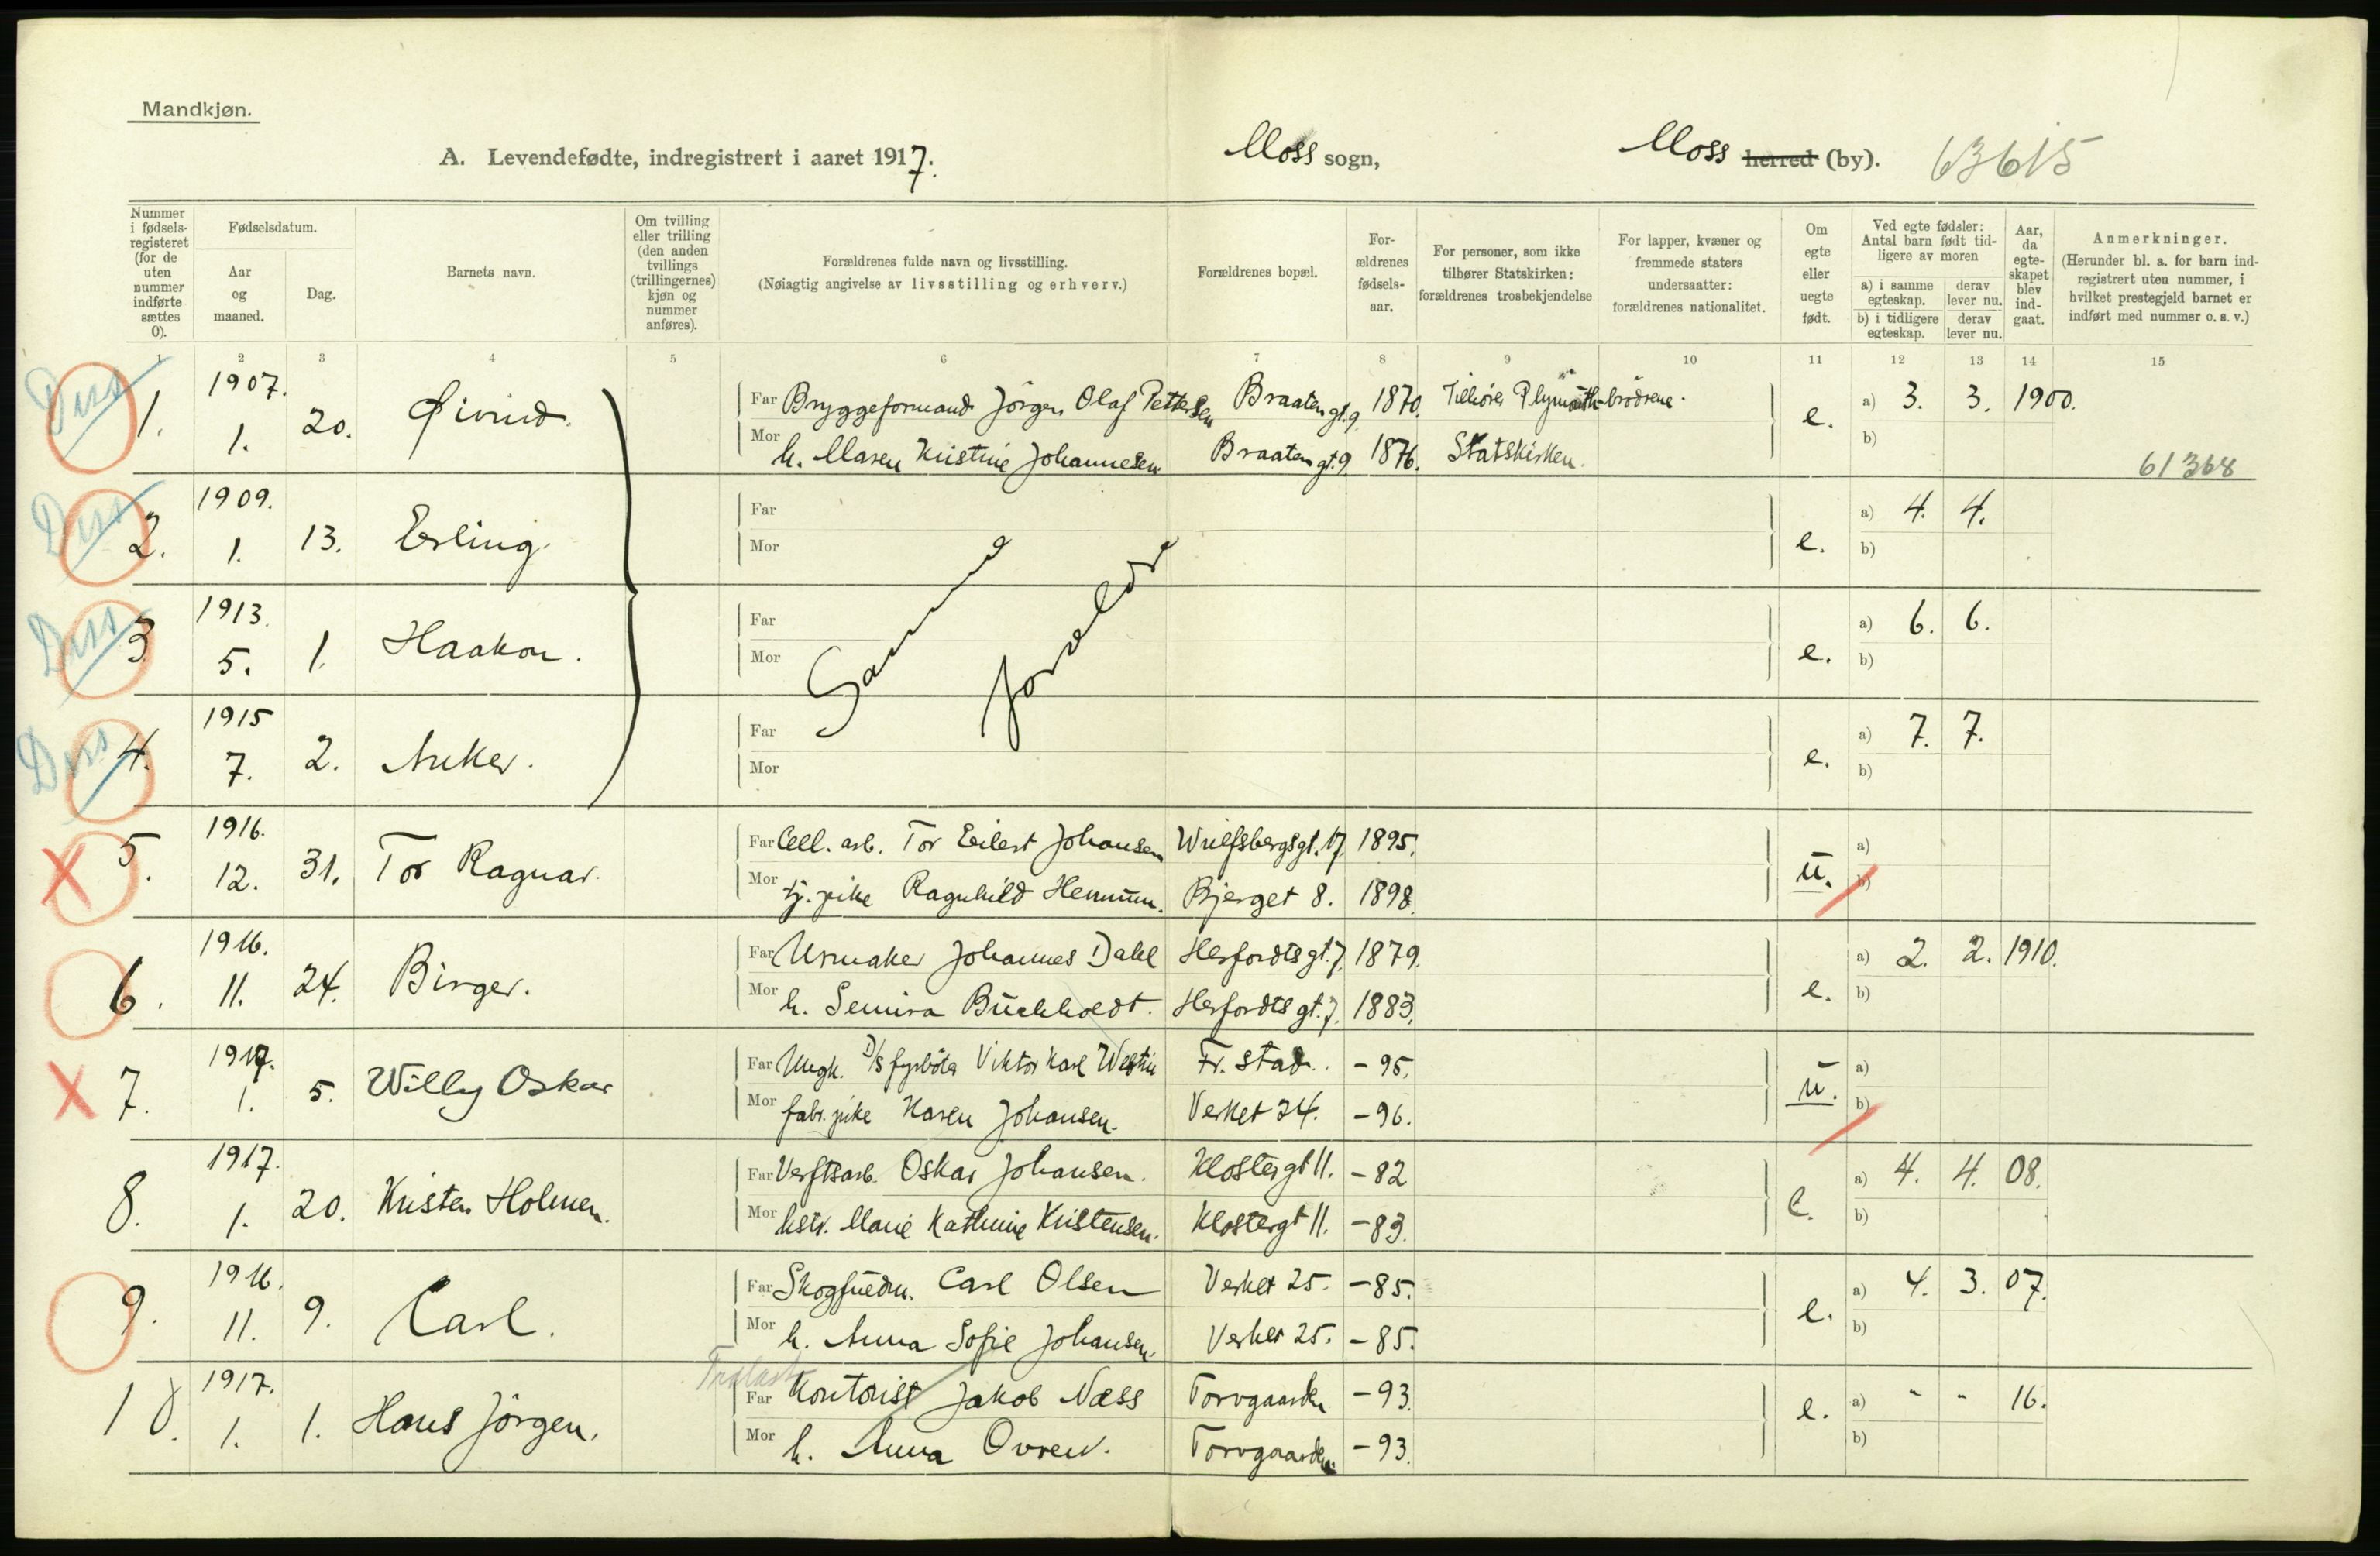 Mandkjøn.
A. Levendefødte, indregistrert i aaret 1917. Moss sogn, Moss herred (by). 63615
Nummer i fødselsregisteret (for de uten nummer indførte sættes 0).
Fødselsdatum.
Aar og maaned.
Dag.
Barnets navn.
Om tvilling eller trilling (den anden tvillings (trillingernes) kjøn og nummer anføres).
Forældrenes fulde navn og livsstilling.
(Nøiagtig angivelse av livsstilling og erhverv.)
Forældrenes bopæl.
Forældrenes fødselsaar.
For personer, som ikke tilhører Statskirken: forældrenes trosbekjendelse
For lapper, kvæner og fremmede staters undersaatter: forældrenes nationalitet.
Om egte eller uegte født.
Ved egte fødsler: Antal barn født tidligere av moren
a) i samme egteskap. derav lever nu.
b) i tidligere egteskap. derav lever nu.
Aar, da egteskapet blev indgaat.
Anmerkninger.
(Herunder bl. a. for barn indregistrert uten nummer, i hvilket prestegjeld barnet er indført med nummer o. s. v.)
1 2 3 4 5 6 7 8 9 10 11 12 13 14 15
1. 1907. 1. 20. Øivind. Far Bryggeformand Jörgen Olaf Pettersen Braatengt. 9 1870. Tilhörer Plymouth-brödrene. e. a) 3. 3. 1900.
Mor h. Maren Kristine Johannesen Braatengt. 9 1876. Statskirken. b)
61368
2. 1909. 1. 13. Erling. Far e. a) 4. 4.
Mor b)
Samme forældre
3 1913. 5. 1. Haakon. Far e. a) 6. 6.
Mor b)
4. 1915 7. 2. Anker. Far e. a) 7. 7.
Mor b)
5. 1916. 12. 31. Tor Ragnar. Far Cell. arb. Tor Eilert Johansen Wulfsbergsgt. 17. 1895. u. a)
Mor tj. pike Ragnhild Hennum. Bjerget 8. 1898. b)
6. 1916. 11. 24. Birger. Far Urmaker Johannes Dahl Herfordts gt. 7. 1879. e. a) 2. 2. 1910.
Mor h. Semira Buchholdt. Herfordts gt. 7. 1883. b)
7. 1917. 1. 5. Willy Oskar Far Ungk. D/s fyrböter Viktor Karl Westin Fr. stad. - 95. u. a)
Mor fabr. pike Karen Johansen. Verket 24. - 96. b)
8. 1917. 1. 20. Kristen Holmen. Far Verftsarb. Oskar Johansen. Klostergt 11. - 82 e. a) 4. 4. 08.
Mor hstr. Marie Kathrine Kristensen. Klostergt 11. - 83. b)
9. 1916. 11. 9. Carl. Far Carl Olsen Verket 25. - 85. e. a) 4. 3. 07.
Mor h. Anna Sofie Johansen. Verket 25. - 85. b)
Trælast
10. 1917. 1. 1. Hans Jörgen. Far Kontorist Jakob Næss Torvgaarden - 93. e. a) - - 16.
Mor h. Anna Torvgaarden. - 93. b)